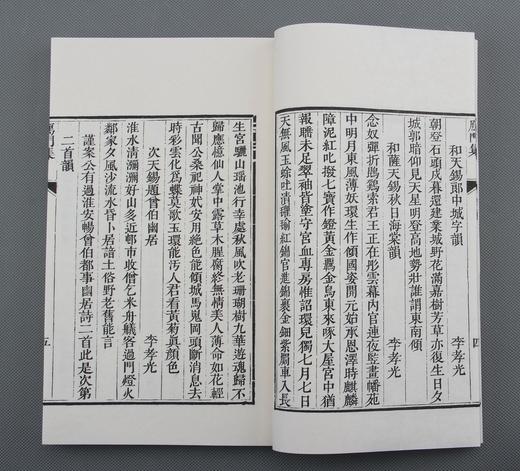 門集
四
和天錫郎中城字韻 李孝光
朝登石頭戍暮還建業城野花滿嘉樹芳草亦復生日夕
城郭暗仰見天星明登高地勢壯誰謂東南傾
和薩天錫秋日海棠韻 李孝光
念奴彈折鵾鷄索君王正在彤雲幕內官連夜監畫幡苑
中明月東風薄妖環生作傾國姿開元始承恩澤時麒麟
障泥紅叱撥七寶作鐙黃金羈金烏東來啄大屋宮中猶
報未足翠袖皆塗守宮血專房惟詔環兒獨七月七日
天無風玉吐漬瑜紅錦官進錦裹金細紫駟車入長
生宮驪山瑤池行幸處秋風吹老珊瑚樹九華遊魂歸不
歸應憶仙人掌中露草木腥腐終無情美人薄命如花輕
古聞公桑祀神安用絕色能傾城馬嵬岡頭斷消息去
時彩雲化爲蝶莫歌玉環能汚人君看黃菊真顏色
次天錫題曾伯幽居 李孝光
淮水清瀰瀰好山多近邨市收僧乞米舟艤客過門燈火
鄰家夕風沙流水昏卜居諳土俗野老舊能言
謹案公有過淮安暢曾伯都事幽居詩二首此是次第
二首韻
門集
五